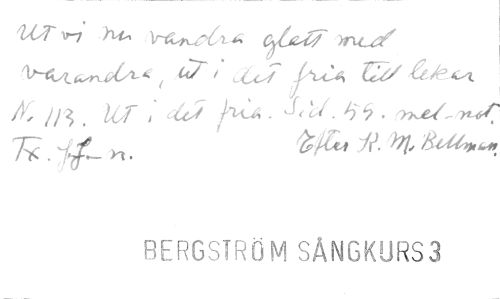 Ut vi nu vandra glatt med
varandra, ut i det fria till lekar
N. 113. Ut i det fria. Sid. 59. mel-not.
Tx. J.J-n. Efter K. M. Bellman.
BERGSTRÖM SÅNGKURS 3